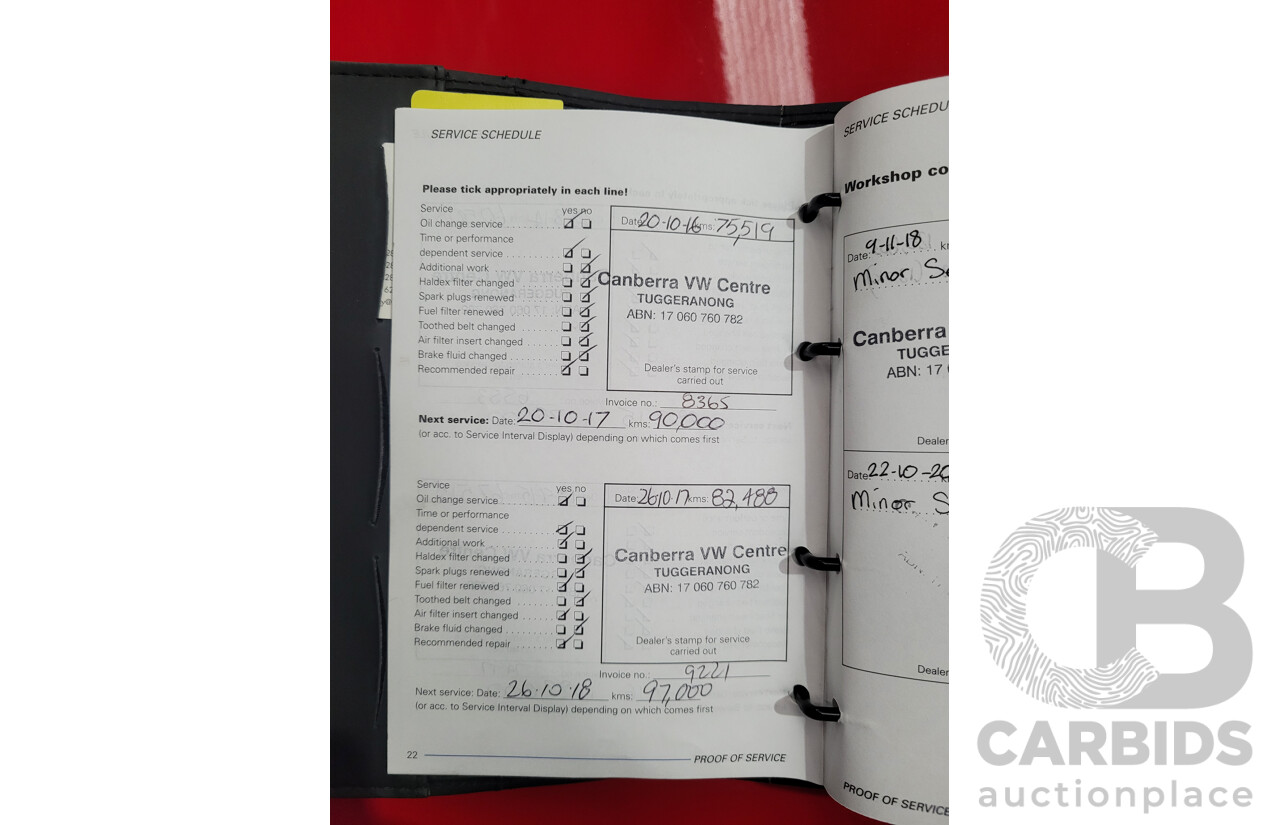 SERVICE SCHEDULE
Please tick appropriately in each line!
Service yes no
Oil change service
Time or performance
dependent service
Additional work
Haldex filter changed
Spark plugs renewed
Fuel filter renewed
Toothed belt changed
Air filter insert changed
Brake fluid changed
Recommended repair
Date: 20-10-16 kms: 75,519
Canberra VW Centre
TUGGERANONG
ABN: 17 060 760 782
Dealer's stamp for service
carried out
Invoice no.: 8365
Next service: Date: 20-10-17 kms: 90,000
(or acc. to Service Interval Display) depending on which comes first
Service yes no
Oil change service
Time or performance
dependent service
Additional work
Haldex filter changed
Spark plugs renewed
Fuel filter renewed
Toothed belt changed
Air filter insert changed
Brake fluid changed
Recommended repair
Date: 26 10.17 kms: 82,488
Canberra VW Centre
TUGGERANONG
ABN: 17 060 760 782
Dealer's stamp for service
carried out
Invoice no.: 9221
Next service: Date: 26.10.18 kms: 97,000
(or acc. to Service Interval Display) depending on which comes first
22 PROOF OF SERVICE
SERVICE SCHEDU
Workshop co
Date: 9-11-18 k
Minor Se
Canberra
TUGGE
ABN: 17
Dealer
Date: 22-10-20
Minor S
Dealer
PROOF OF SERVICE
CB
CARBIDS
auctionplace